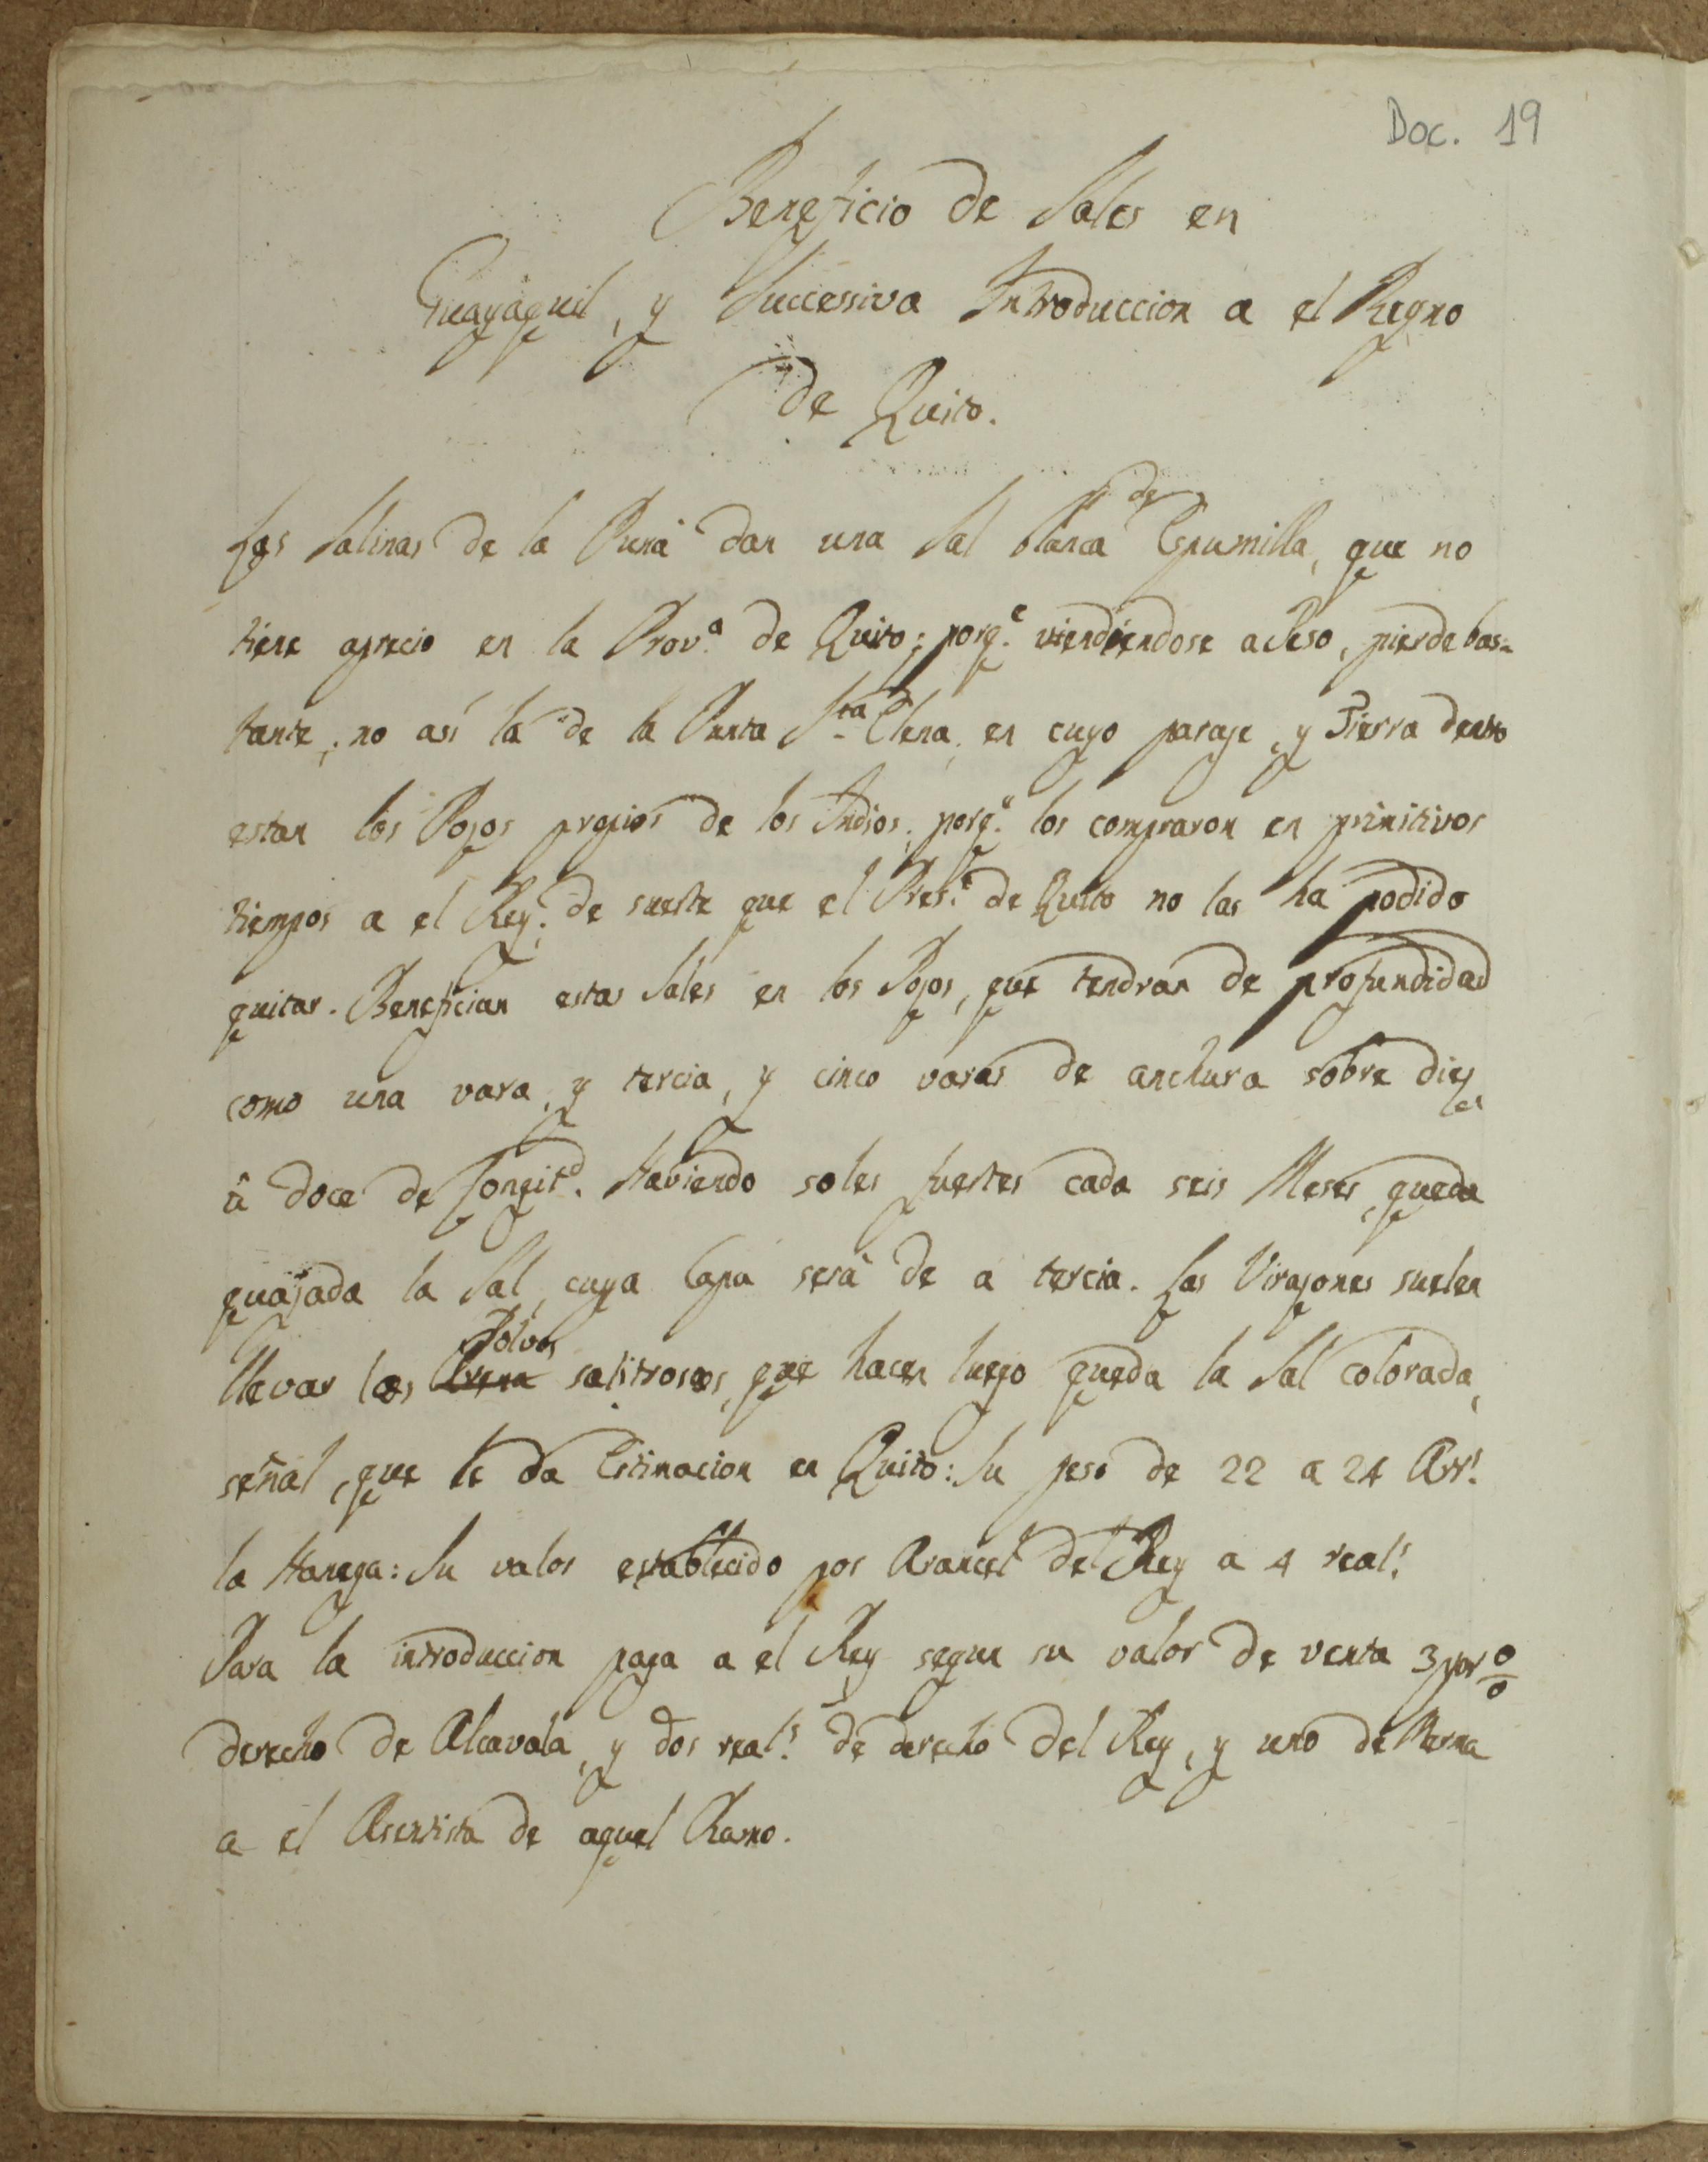 Doc. 19
Beneficio de Sales en
Guayaquil, y Successiva Introduccion a el Regno
de Quito.
Las Salinas de la Puná dan una Sal blanca de Espumilla, que no
tiene aprecio en la Prov.ª de Quito; porq.e viendiendose a Peso, pierde bas=
tante; no así la de la Punta S.ta Elena, en cuyo parage, y Tierra dentro
estan los Pozos propios de los Indios, porq.e los compraron en primitivos
tiempos a el Rey; de suerte que el Pres.te de Quito no las ha podido
quitar. Benefician estas Sales en los Pozos, que tendran de profundidad
como una vara, y tercia, y cinco varas de anchura sobre diez
à doce de Longit.d Haviendo soles fuertes cada seis Meses, queda
quajada la Sal, cuya Capa será de a tercia. Las Virazones suelen
Polvos
llevar los Arena salitrosos, que hacen luego queda la Sal colorada,
señal, que le da Estimacion en Quito: Su peso de 22 a 24 Arr.s
la Hanega: Su valor establecido por Arancel del Rey a 4 real.s
Para la introduccion paga a el Rey segun su valor de venta 3 por %
derecho de Alcavala, y dos real.s de derecho del Rey, y uno de Merma
a el Asentista de aquel Ramo.